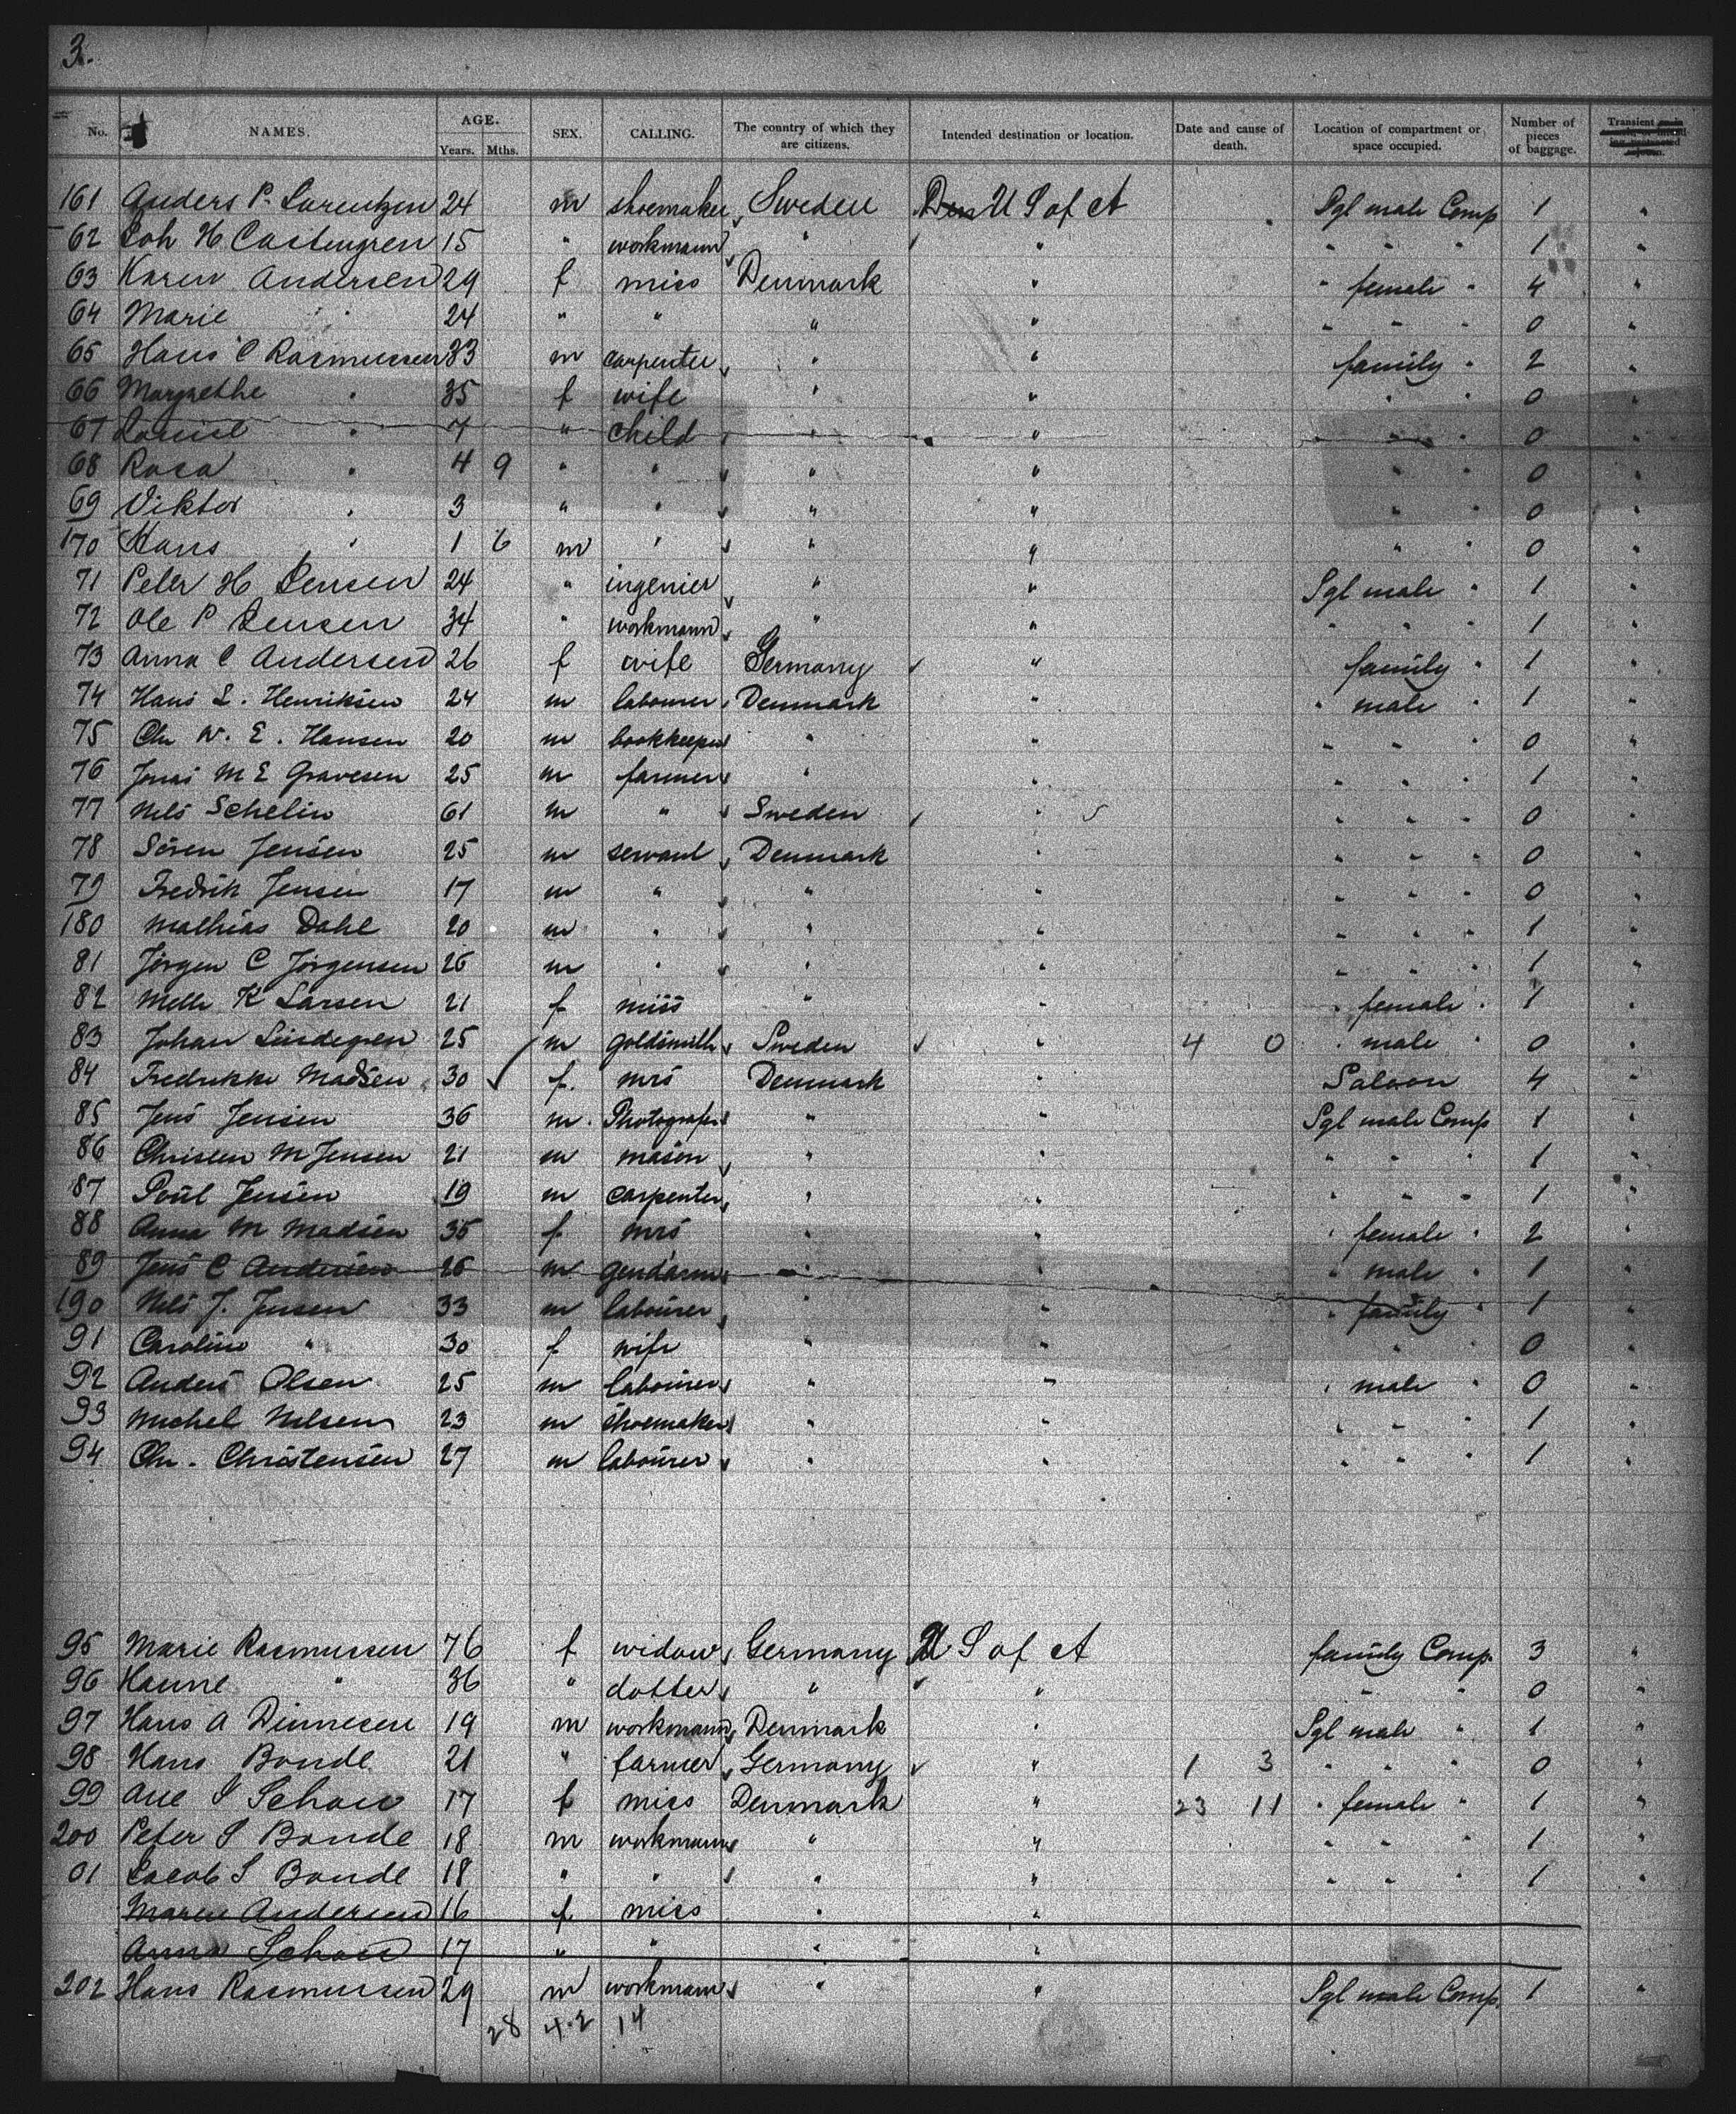 3.
No. NAMES. AGE. Years. Mths. SEX. CALLING. The country of which they are citizens. Intended destination or location. Date and cause of death. Location of compartment or space occupied. Number of pieces of baggage. Transient
161 Anders P. Lorentzen 24 m shoemaker Sweden U S of A Sgl male Comp 1 "
62 Joh H Castengren 15 " workmann " " " " " 1 "
63 Karen Andersen 29 f miss Denmark " " female " 4 "
64 Marie " 24 " " " " " " " 0 "
65 Hans C Rasmussen 33 m carpenter " " family " 2 "
66 Margrethe " 35 f wife " " " " 0 "
67 Louise " 7 " child " " " " 0 "
68 Rosa " 4 9 " " " " " " 0 "
69 Viktor " 3 " " " " " " 0 "
170 Hans " 1 6 m " " " " " 0 "
71 Peter H Jensen 24 " ingenier " " Sgl male " 1 "
72 Ole P Jensen 34 " workmann " " " " " 1 "
73 Anna C Andersen 26 f wife Germany " family " 1 "
74 Hans L. Henriksen 24 m labourer Denmark " " male " 1 "
75 Chr W. E. Hansen 20 m bookkeeper " " " " " 0 "
76 Jonas M E Gravesen 25 m farmer " " " " " 1 "
77 Nels Schelin 61 m " Sweden " " " " 0 "
78 Sören Jensen 25 m servant Denmark " " " " 0 "
79 Fredrik Jensen 17 m " " " " " " 0 "
180 Mathias Dahl 20 m " " " " " " 1 "
81 Jörgen C Jörgensen 26 m " " " " " " 1 "
82 Mette K Larsen 21 f miss " " " female " 1 "
83 Johan Lindegren 25 m goldsmith Sweden " 4 0 " male " 0 "
84 Fredrikke Madsen 30 f. mrs Denmark " Saloon 4 "
85 Jens Jensen 36 m. Photografer " " Sgl male Comp 1 "
86 Christen M Jensen 21 m mason " " " " " 1 "
87 Poul Jensen 19 m carpenter " " " " " 1 "
88 Anna M Madsen 35 f mrs " " " female " 2 "
89 Jens C Andersen 26 m gendarm " " " male " 1 "
190 Nels J. Jensen 33 m labourer " " " family " 1 "
91 Caroline " 30 f wife " " " " 0 "
92 Anders Olsen 25 m labourer " " " male " 0 "
93 Michel Nelsen 23 m shoemaker " " " " " 1 "
94 Chr. Christensen 27 m labourer " " " " " 1 "
95 Marie Rasmussen 76 f widow Germany U S of A family Comp. 3 "
96 Hanne " 36 " dotter " " " " 0 "
97 Hans A Dinnesen 19 m workmann Denmark " Sgl male " 1 "
98 Hans Bonde 21 " farmer Germany " 1 3 " " " 0 "
99 Ane I Schou 17 f miss Denmark " 23 11 " female " 1 "
200 Peter S Bonde 18 m workmann " " " " " 1 "
01 Jacob S Bonde 18 " " " " " " " 1 "
Maren Andersen 16 f miss " "
Anna Schou 17 " " " "
202 Hans Rasmussen 29 m workmann " " Sgl male Comp. 1 "
28 4.2 14